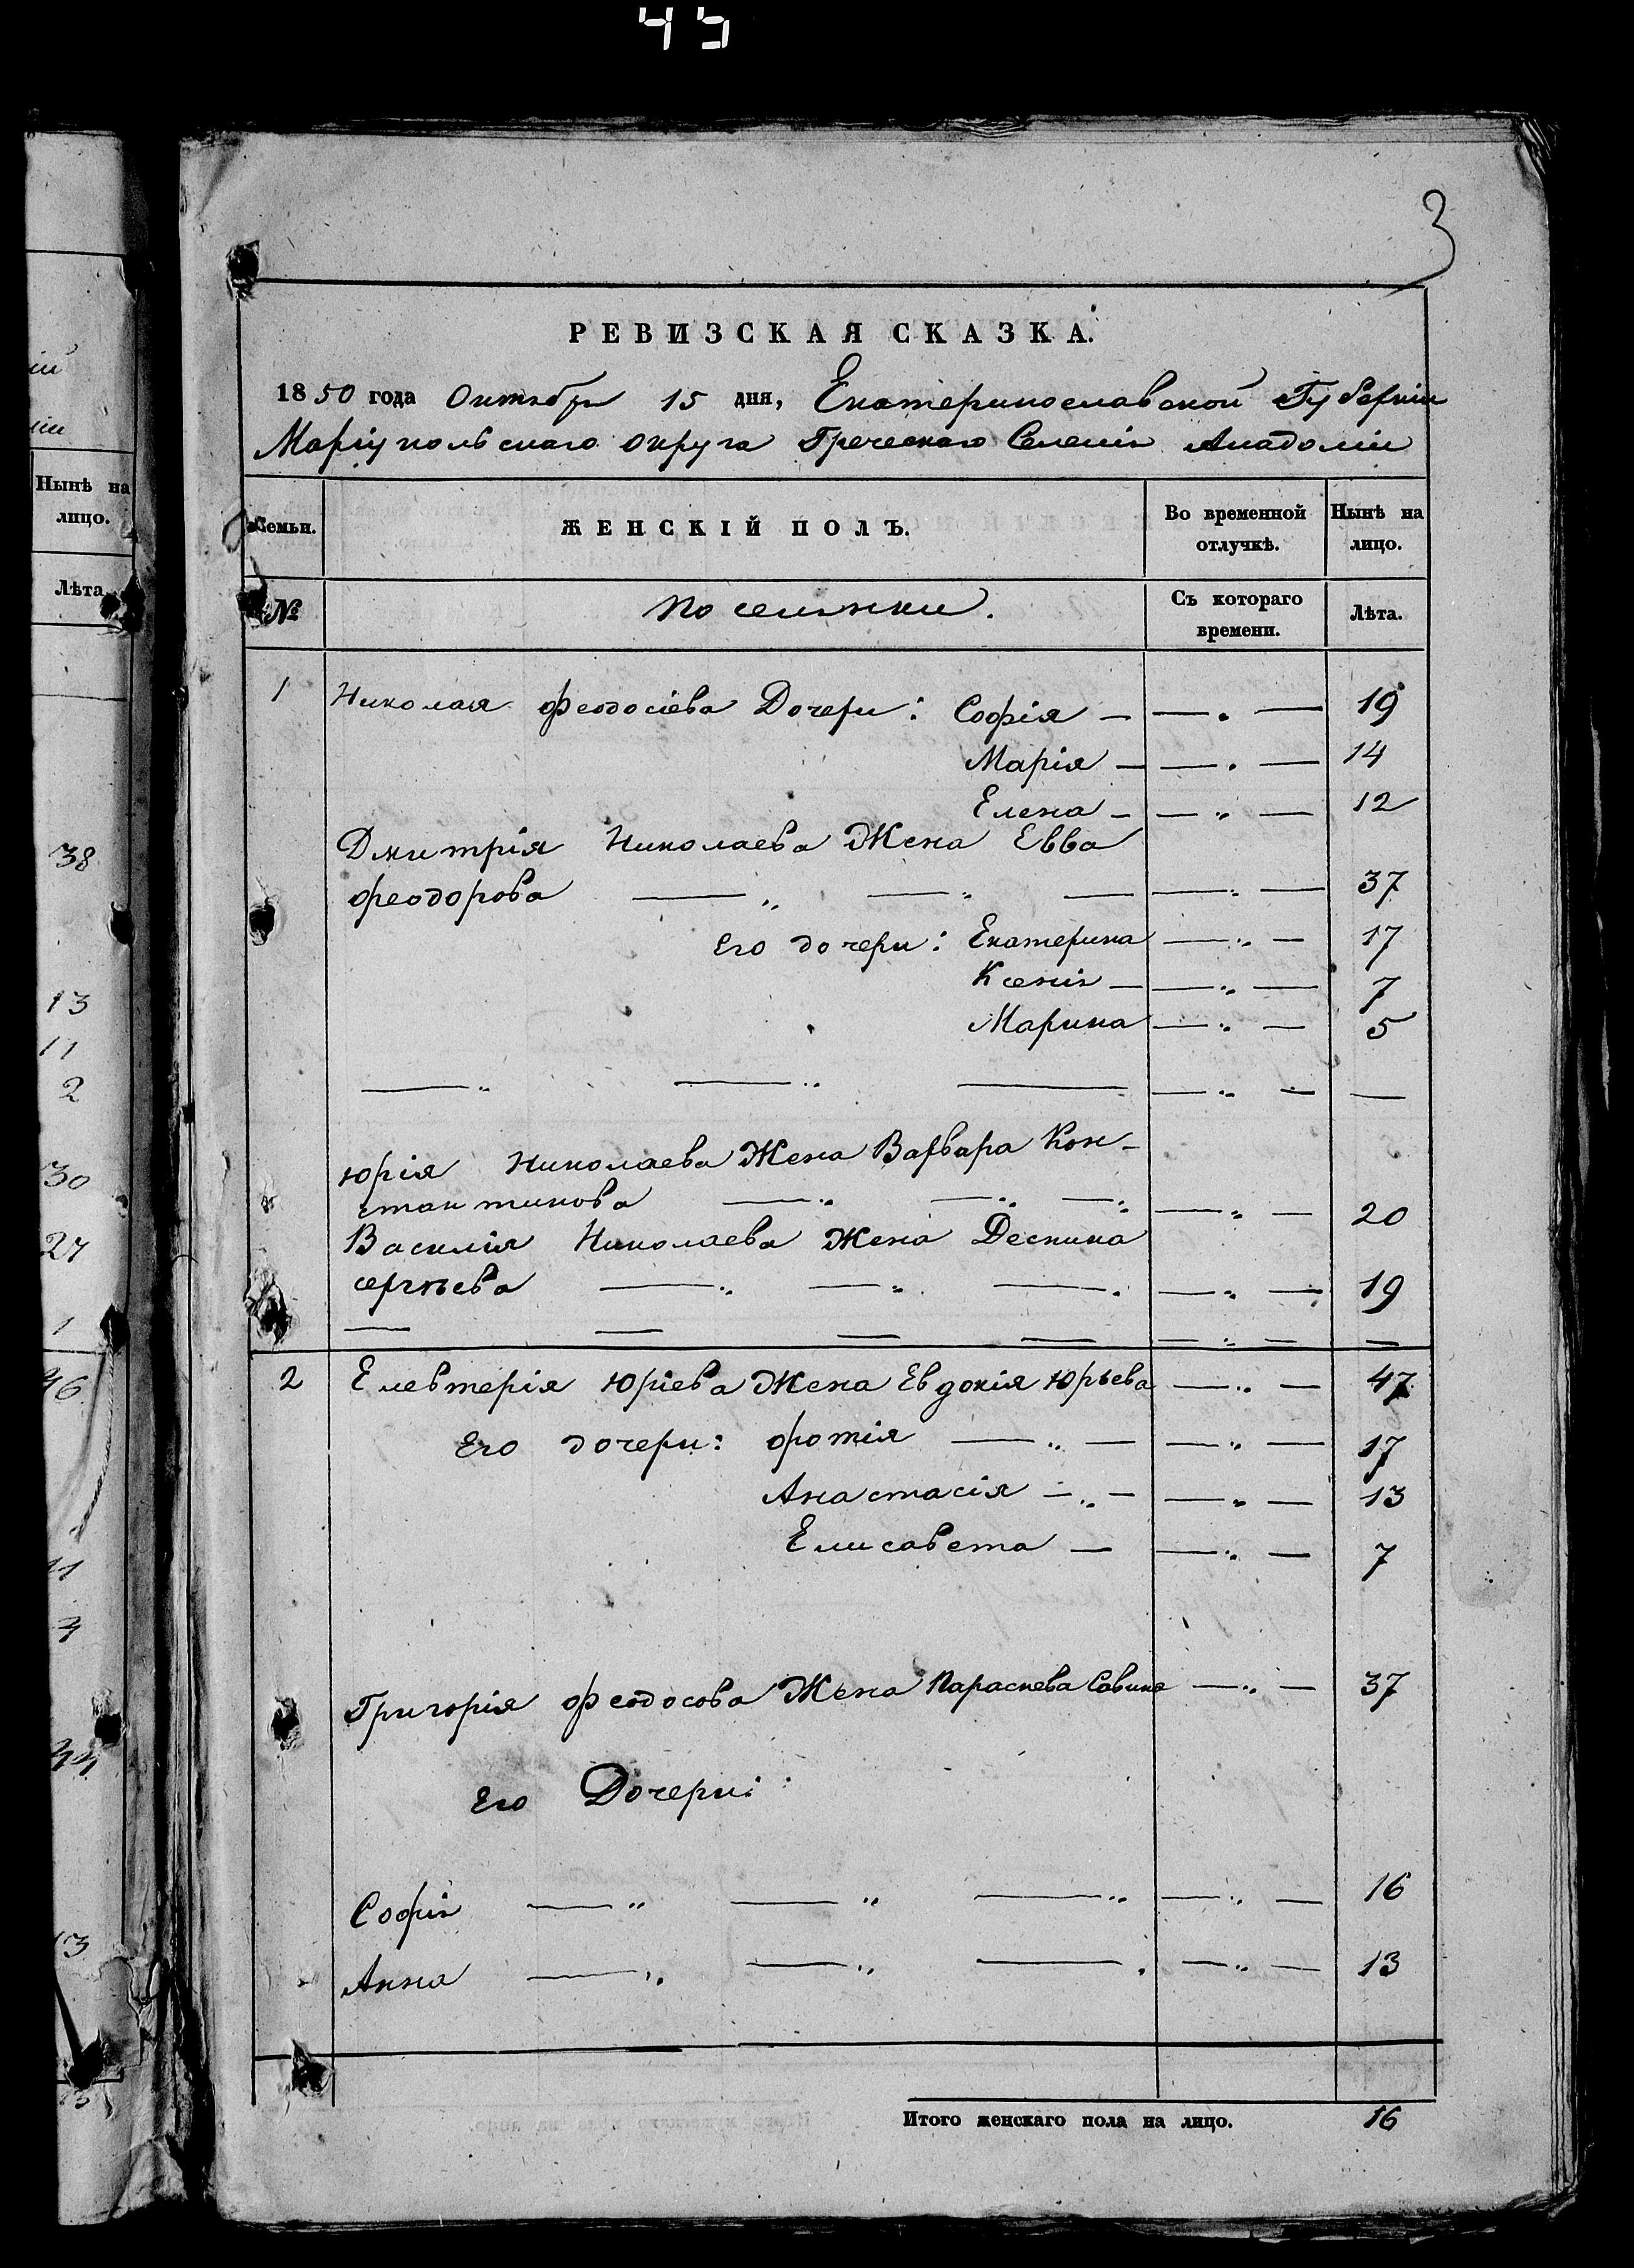 45
3
РЕВИЗСКАЯ СКАЗКА.
1850 года Октября 15 дня, Екатеринославской Губернии
Маріупольскаго округа Греческаго Селенія Анадоліи
Семьи. ЖЕНСКІЙ ПОЛЪ. Во временной отлучкѣ. Нынѣ на лицо.
№ Поселянки. Съ котораго времени. Лѣта.
1 Николая Феодосіева Дочери: Софія — — „ — 19
Марія — — „ — 14
Елена — — „ — 12
Дмитрія Николаева Жена Евва
Феодорова — „ — „ — — „ — 37
Его дочери: Екатерина — „ — 17
Ксенія — — „ — 7
Марина — „ — 5
— „ — „ — — „ — —
Юрія Николаева Жена Варвара Кон-
стантинова — „ — „ — „ — „ — 20
Василія Николаева Жена Деспина
Сергѣева — „ — „ — „ — „ — 19
— — — — — „ — —
2 Елевтерія Юріева Жена Евдокія Юрьева — „ — 47
Его дочери: Фотія — „ — — „ — 17
Анастасія — „ — — „ — 13
Елисавета — — „ — 7
Григорія Феодосова Жена Параскева Савина — „ — 37
Его Дочери:
Софія — „ — „ — „ — „ — 16
Анна — „ — „ — „ — „ — 13
Итого женскаго пола на лицо. 16
Нынѣ на
лицо.
Лѣта
38
13
11
2
30
27
1
46
11